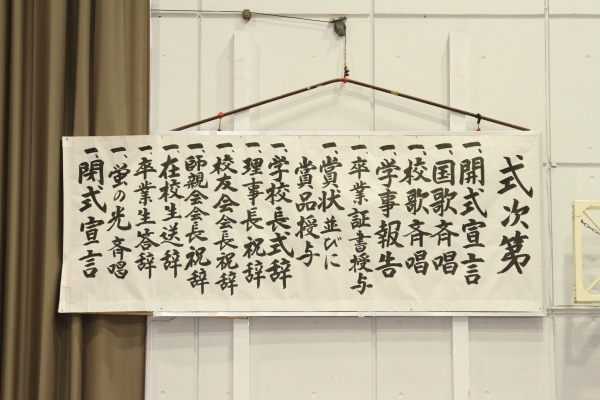 式次第
一、開式宣言
一、国歌斉唱
一、校歌斉唱
一、学事報告
一、卒業証書授与
一、賞状並びに
賞品授与
一、学校長式辞
一、理事長祝辞
一、校友会会長祝辞
一、師親会会長祝辞
一、在校生送辞
一、卒業生答辞
一、蛍の光斉唱
一、閉式宣言